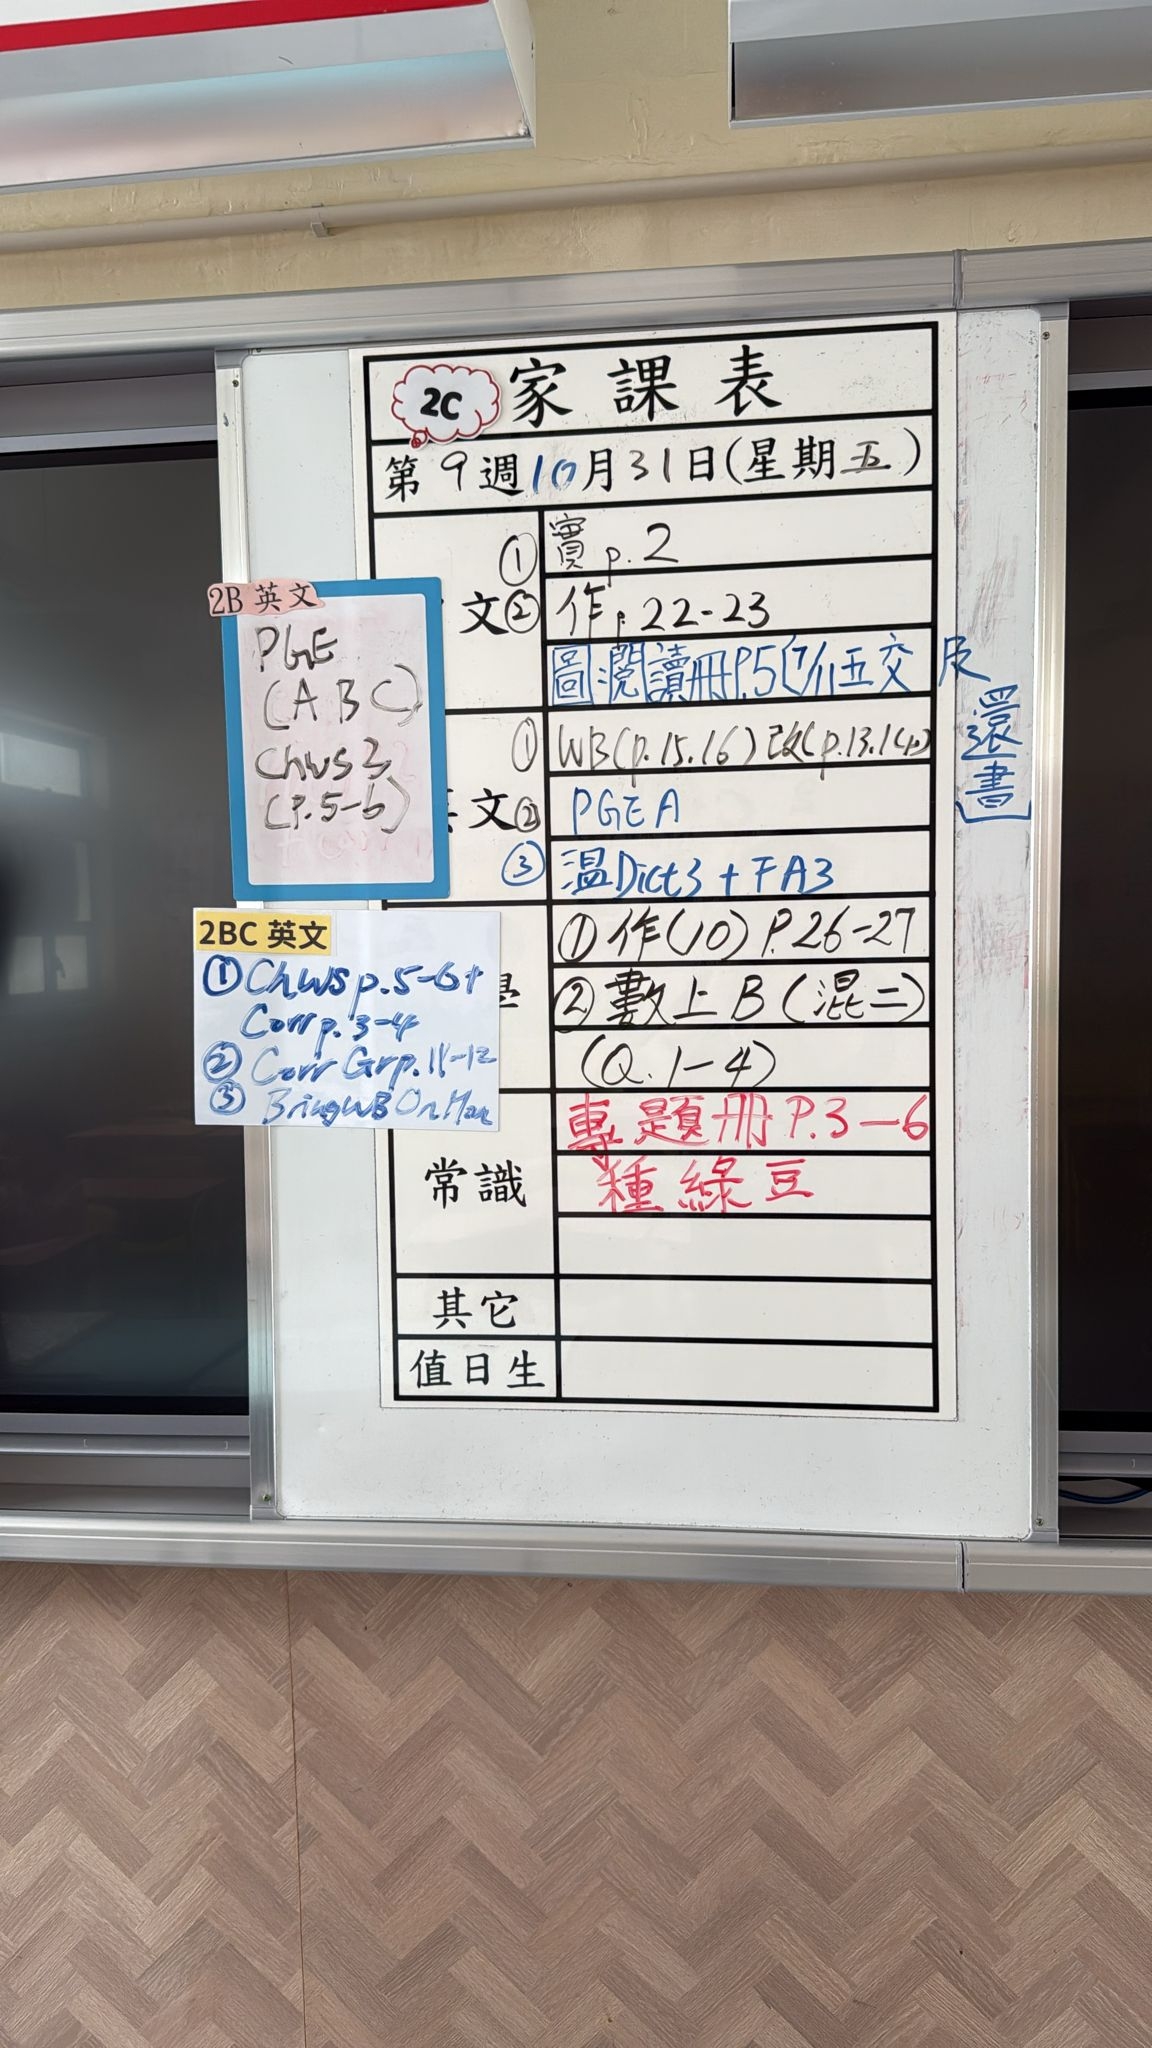 2C 家課表
第9週10月31日(星期五)
文
① 實 p.2
② 作 p.22-23
圖閱讀冊P.5(7/11五交及
還書)
文
① WB(p.15.16) 改(p.13.14)
② PGE A
③ 溫Dict3 + FA3
① 作(10) P.26-27
② 數上B(混二)
(Q.1-4)
常識
專題冊 P.3-6
種綠豆
其它
值日生
2B 英文
PGE
(A B C)
Chws 3
(P.5-6)
2BC 英文
① Chws p.5-6+
Corr p.3-4
② Corr Gr p.11-12
③ Bring WB On Mon